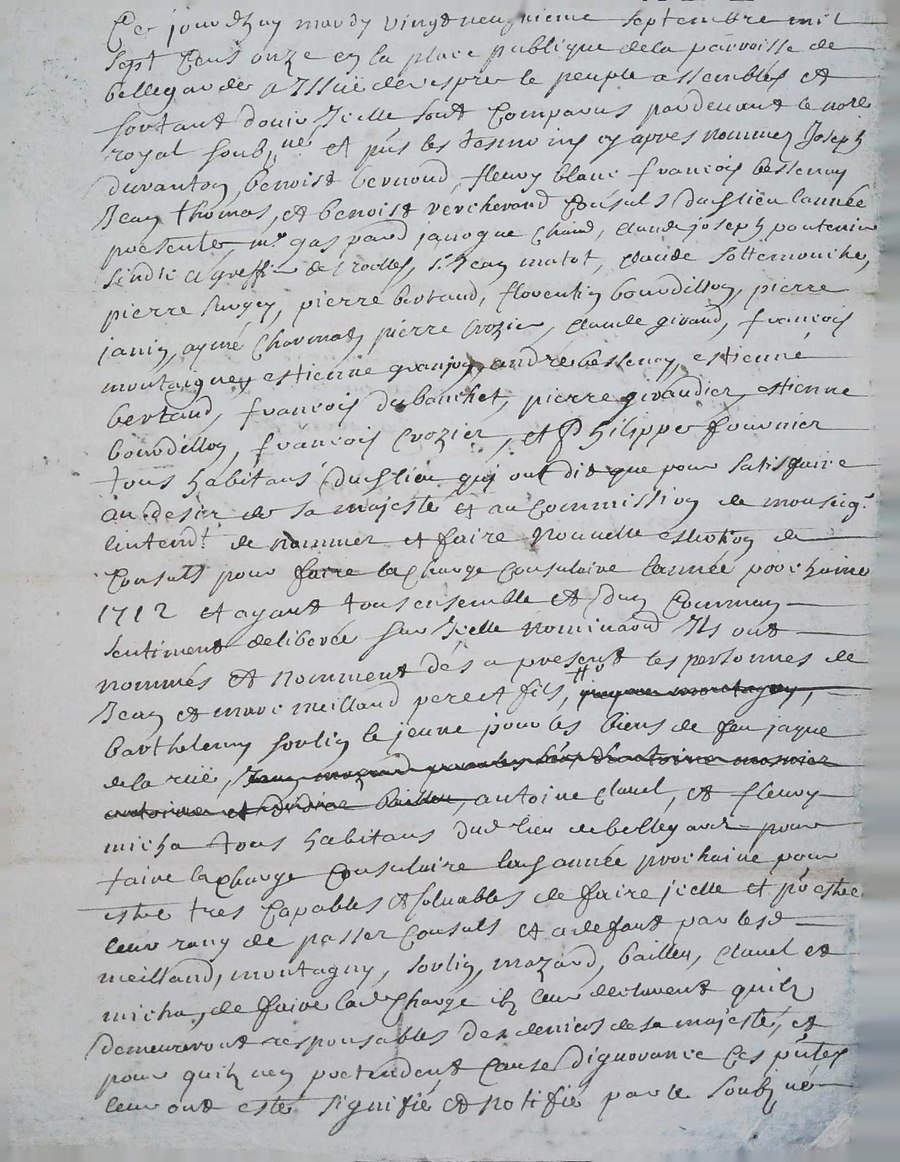 Ce jourdhuy mardy vingt neufvieme septembre mil
sept cens onze en la place publique de la parroisse de
bellegarde a lissüe de vespre le peuple assemblés et
sortant douir jcelle sont comparus pardevant le no.re
royal soubz.né et p.nts les tesmoins cy apres nommez Joseph
duranton, benoist bernoud, fleury blanc francois bessenay
Jean thomas, et benoist vercherand consuls dud lieu lannée
presente, m.e gaspard janogue claude joseph pontenier
sindic et greffier de rolles, s.r Jean matot, claude sottemouche,
pierre, pierre bertaud, florentin bourdillon, pierre
janin, aymé charmat, pierre crozier, claude giraud, francois
montaigney estienne granjon, andré bessenay, estienne
bertaud, francois dubanchet, pierre giraudier, estienne
bourdillon, francois crozier, et Philippe fournier
tous habitans dud lieu qui ont dit que pour satisfaire
au desir de sa majesté et au commission de monseig.r
lintend.t de nommer et faire nouvelle eslection de
Consuls pour faire la charge consulaire lannée prochaine
1712 et ayant tous ensemble et dun commun
sentiment deliberée sur jcelle nominaon Ils ont
nommés et nomment dés a present les personnes de
Jean et marc meilland pere et fils, montagny,
barthelemy soulin le jeune pour les biens de feu jaque
de la rüe, Jean mazard pour les biens dantoine
antoine et baillou, antoine clauel, et fleury
micha tous habitans dud lieu de bellegarde pour
faire la charge consulaire lad année prochaine pour
estre tres capables et soluables de faire jcelle et p.r estre
leur rang de passer consuls et a defaut par lesd
meilland, montagny, soulin, mazard, bailleu, clauel et
micha, de faire lad charge ilz leur declarent quilz
demeureront responsables des deniers de sa majesté, et
pour quilz nen pretendent cause dignorance ces p.ntes
leur ont esté signifié et notiffié par le soubz.né